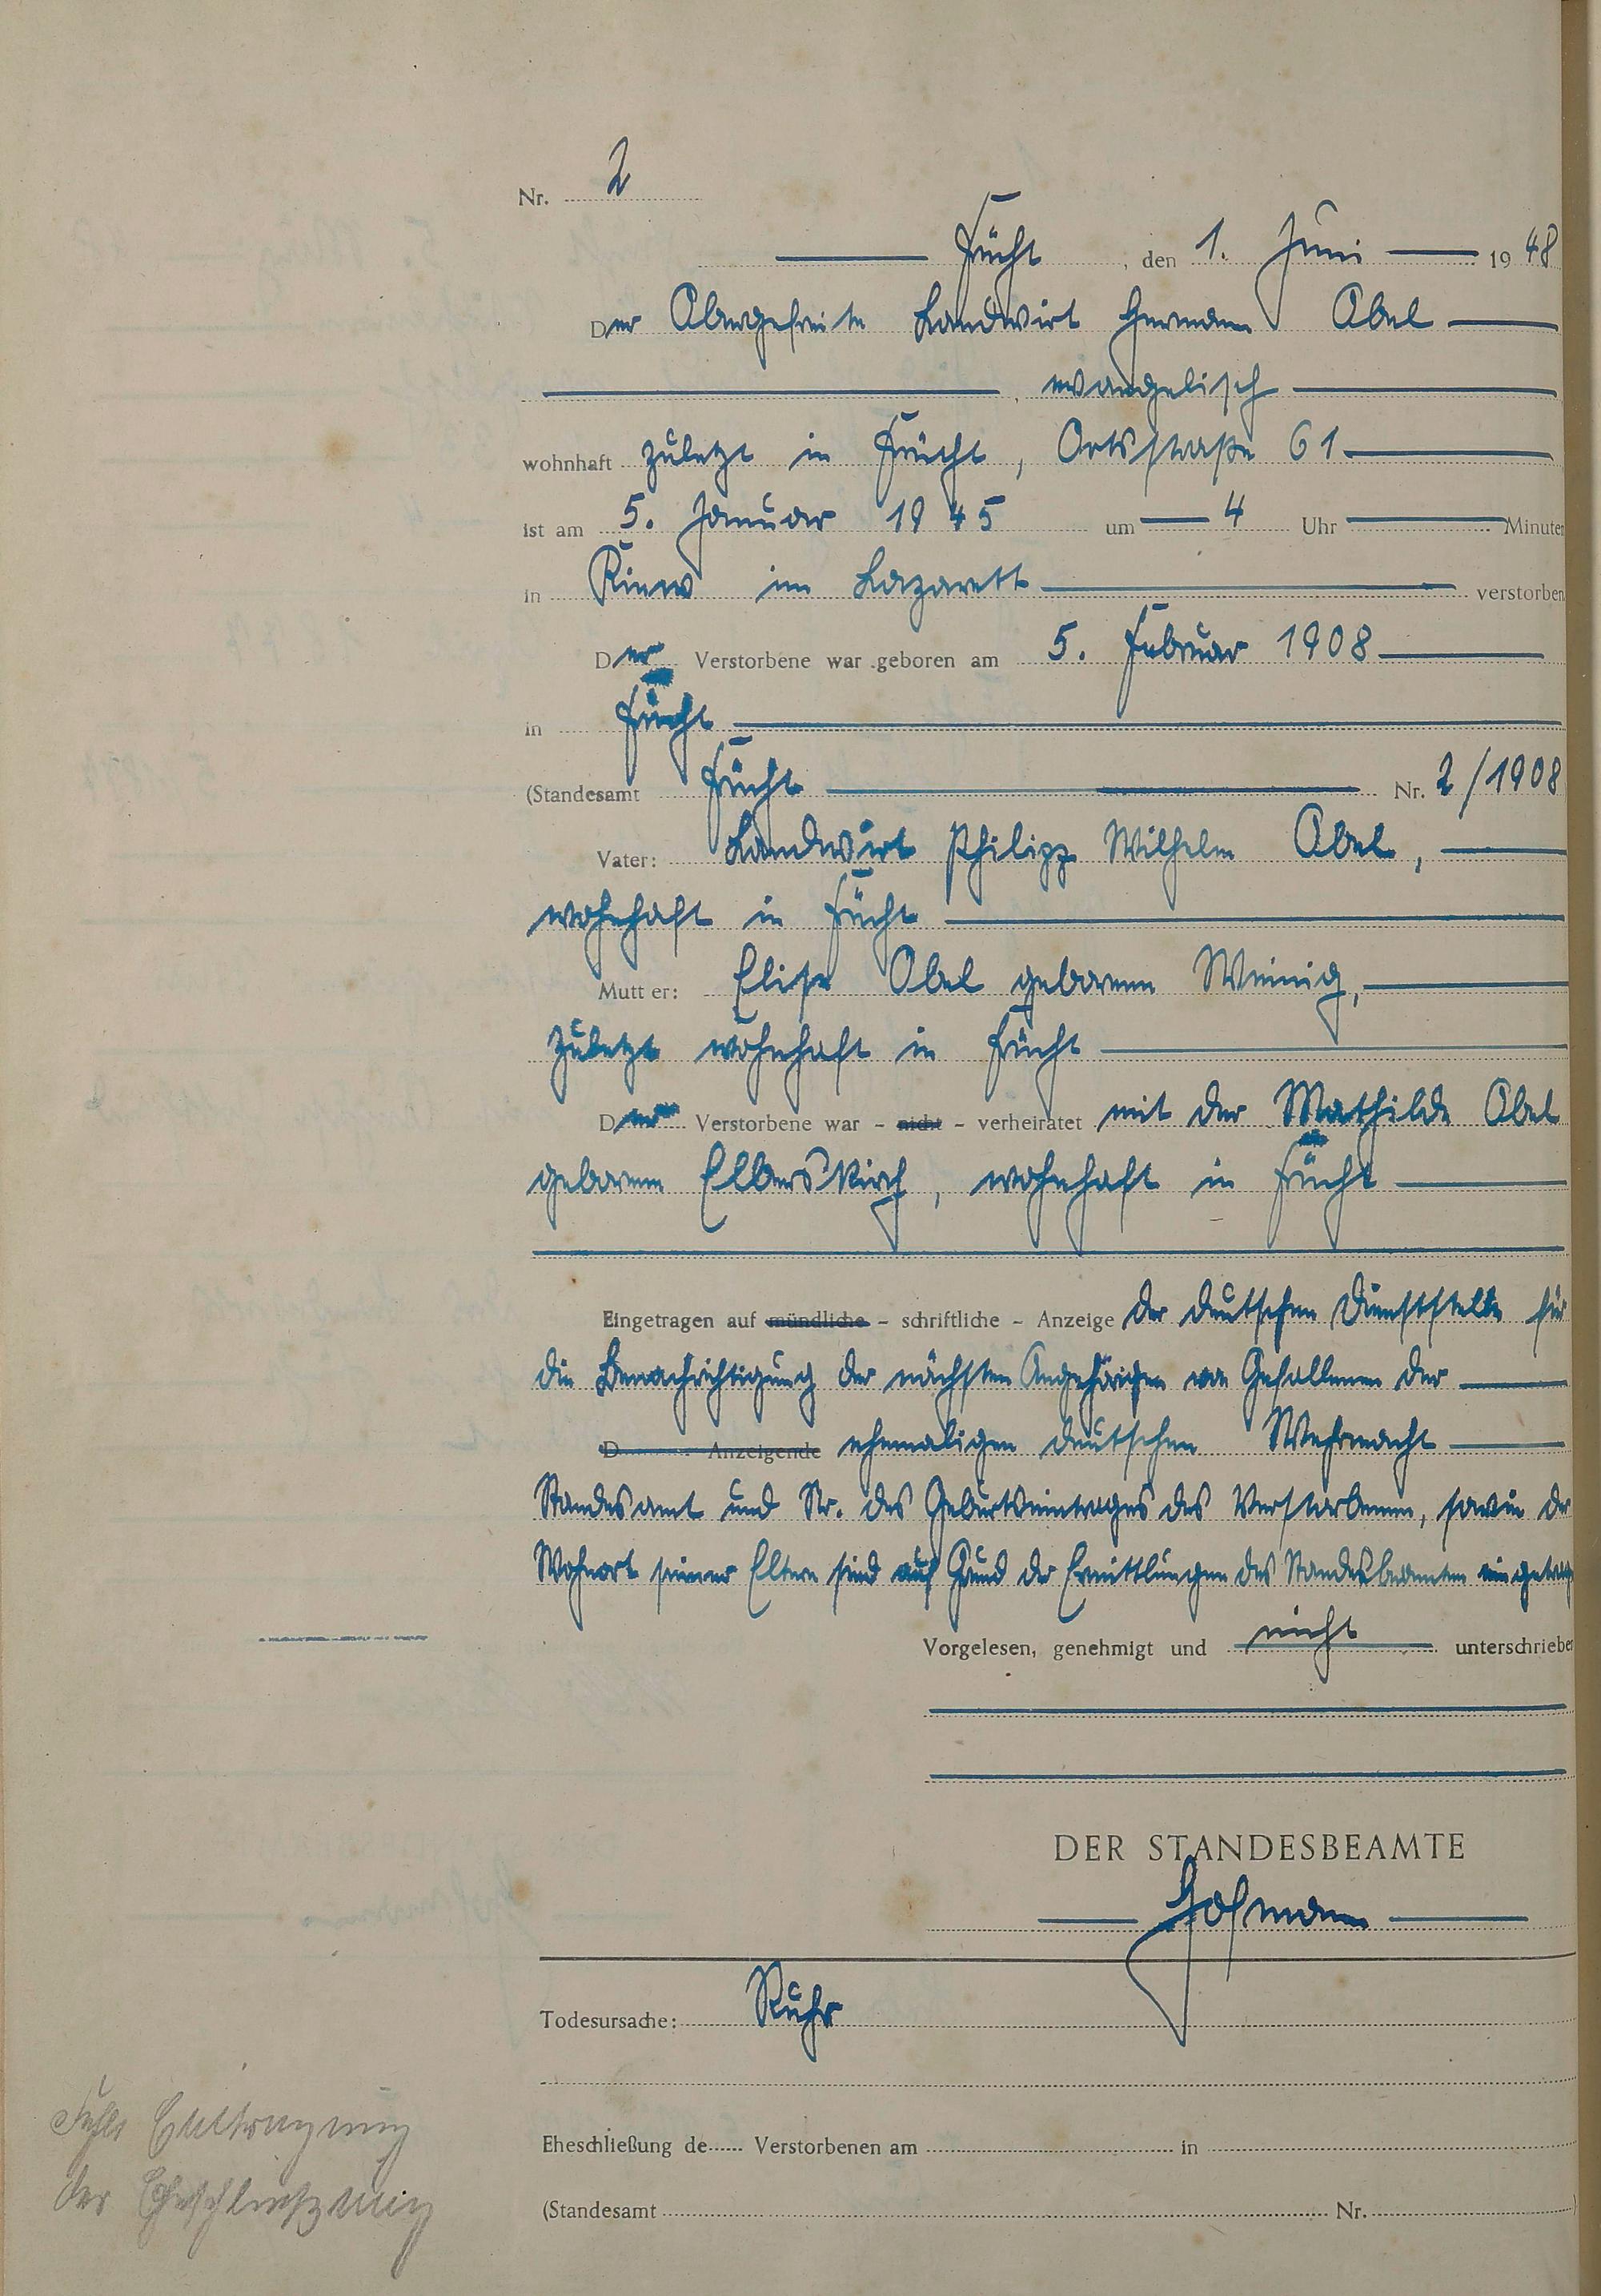 Nr. 2
Frücht, den 1. Juni 1948
Der Obergefreite Landwirt Hermann Abel
, evangelisch
wohnhaft zuletzt in Frücht, Ortsstraße 61
ist am 5. Januar 1945 um 4 Uhr Minuten
in Kiew im Lazarett verstorben
Der Verstorbene war geboren am 5. Februar 1908
in Frücht
(Standesamt Frücht Nr. 2/1908
Vater: Landwirt Philipp Wilhelm Abel,
wohnhaft in Frücht
Mutter: Elise Abel geborene Weinig,
zuletzt wohnhaft in Frücht
Der Verstorbene war - nicht - verheiratet mit der Mathilde Abel
geborene Elberskirch, wohnhaft in Frücht
Eingetragen auf mündliche - schriftliche - Anzeige der deutschen Dienststelle für
die Benachrichtigung der nächsten Angehörigen von Gefallenen der
D Anzeigende ehemaligen deutschen Wehrmacht
Standesamt und Nr. des Geburtseintrages des Verstorbenen, sowie der
Wohnort seiner Eltern sind auf Grund der Ermittlungen des Standesbeamten eingetrag
Vorgelesen, genehmigt und nicht unterschrieben
DER STANDESBEAMTE
Hofmann
Todesursache: Ruhr
Eheschließung de Verstorbenen am in
(Standesamt Nr. )
Eintragung
der Eheschließung